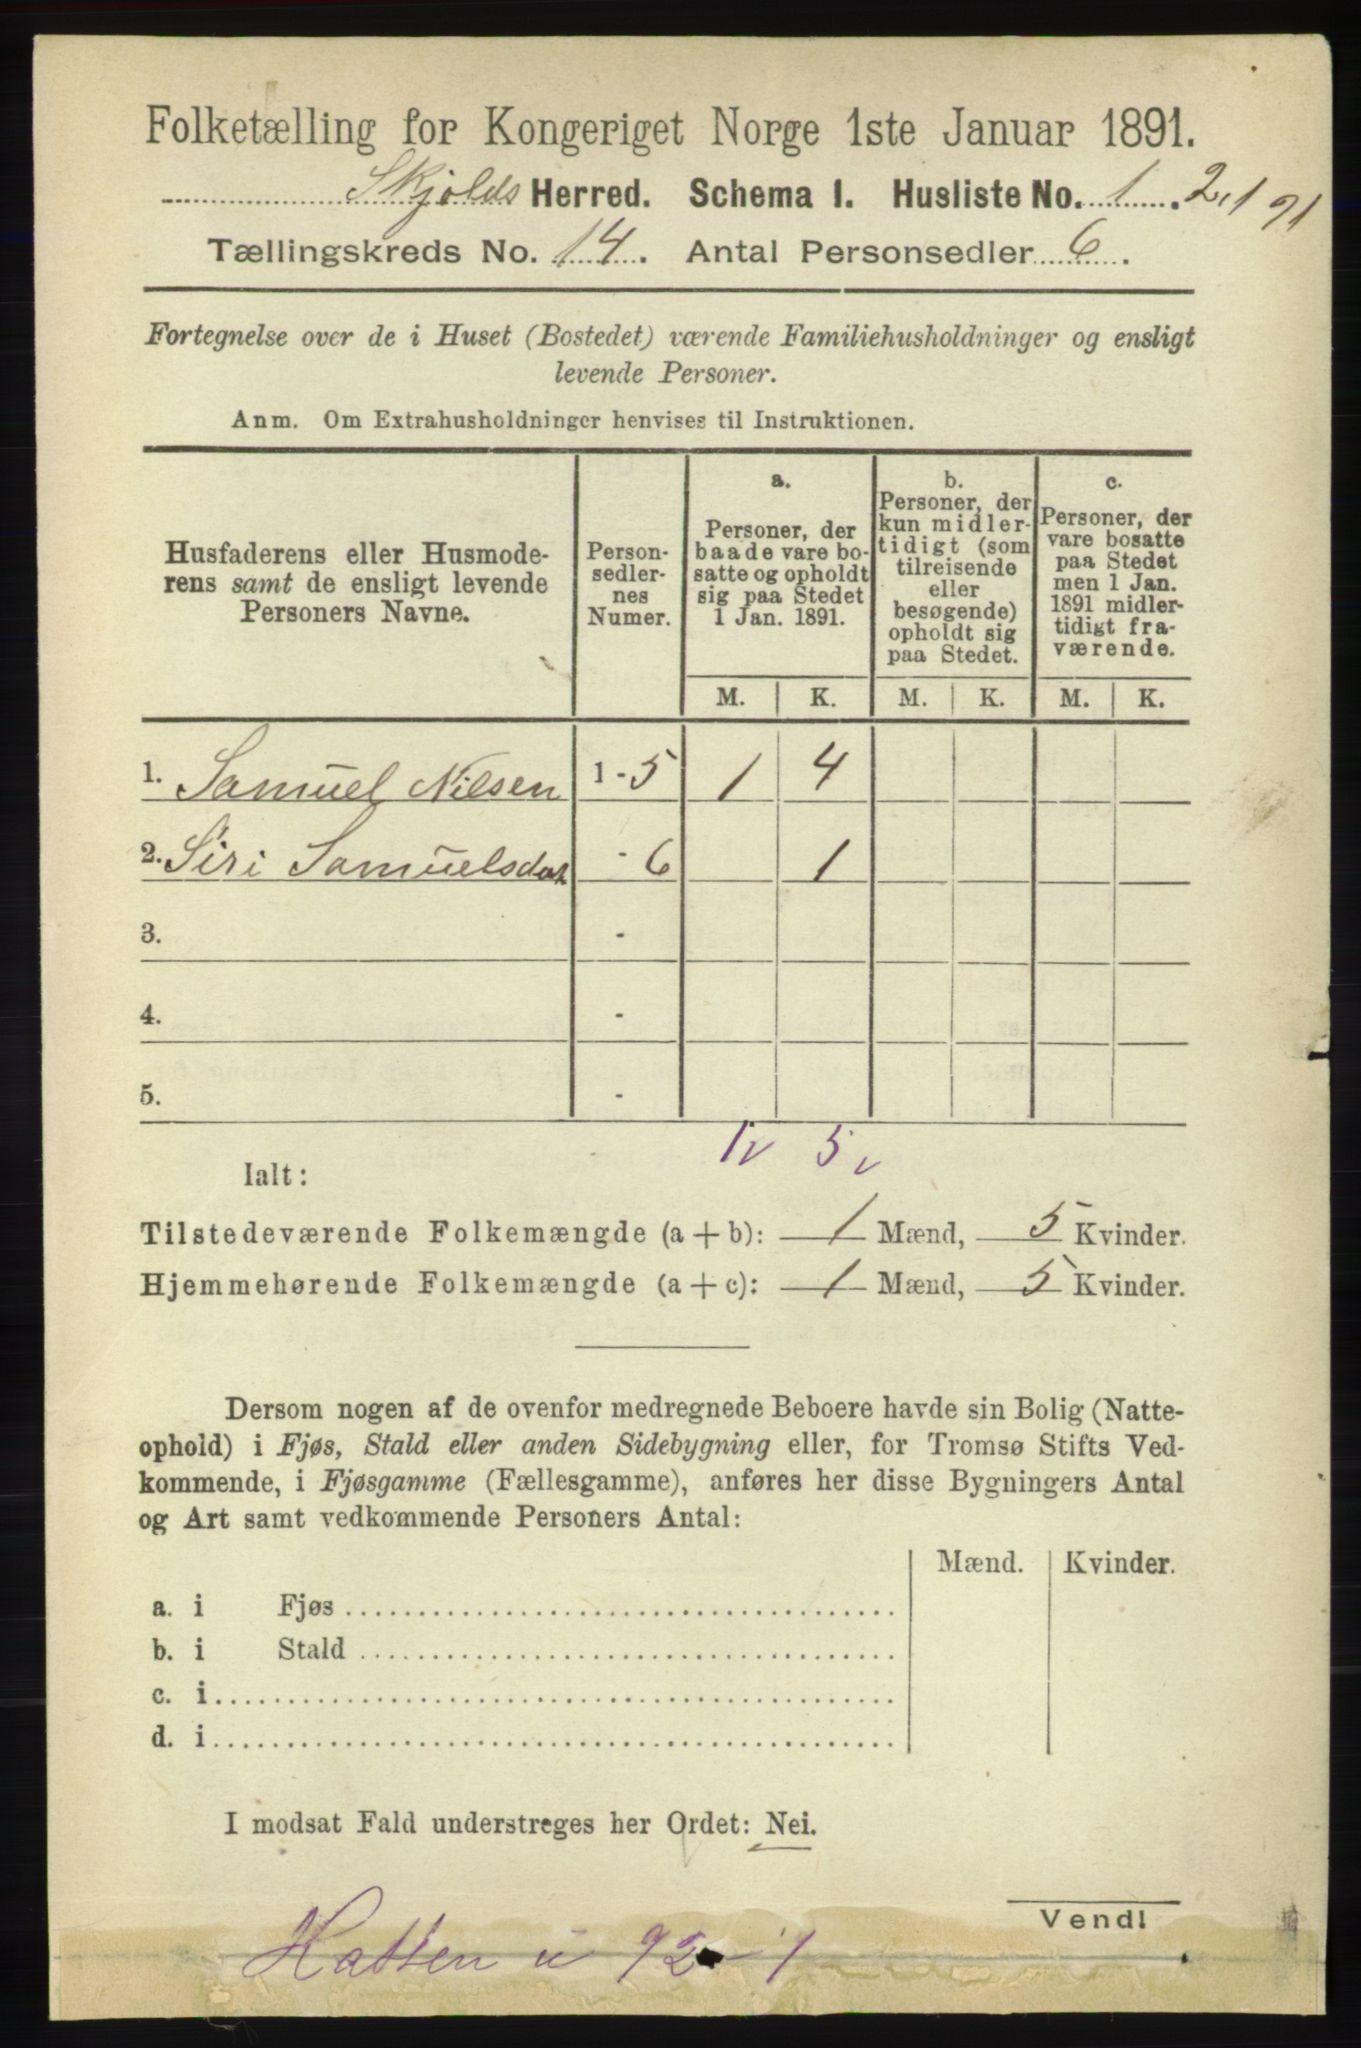 Folketælling for Kongeriget Norge 1ste Januar 1891.
Skjolds Herred. Schema I. Husliste No. 1. 2/1 91
Tællingskreds No. 14. Antal Personsedler 6.
Fortegnelse over de i Huset (Bostedet) værende Familiehusholdninger og ensligt
levende Personer.
Anm. Om Extrahusholdninger henvises til Instruktionen.
Husfaderens eller Husmode-
rens samt de ensligt levende
Personers Navne.
Person-
sedler-
nes
Numer.
a.
Personer, der
baade vare bo-
satte og opholdt
sig paa Stedet
1 Jan. 1891.
b.
Personer, der
kun midler-
tidigt (som
tilreisende
eller
besøgende)
opholdt sig
paa Stedet.
c.
Personer, der
vare bosatte
paa Stedet
men 1 Jan.
1891 midler-
tidigt fra-
værende.
M. K. M. K. M. K.
1. Samuel Nilsen 1-5 1 4
2. Siri Samuelsdat - 6 1
3. -
4. -
5. -
1v 5v
Ialt:
Tilstedeværende Folkemængde (a + b): 1 Mænd, 5 Kvinder.
Hjemmehørende Folkemængde (a + c): 1 Mænd, 5 Kvinder.
Dersom nogen af de ovenfor medregnede Beboere havde sin Bolig (Natte-
ophold) i Fjøs, Stald eller anden Sidebygning eller, for Tromsø Stifts Ved-
kommende, i Fjøsgamme (Fællesgamme), anføres her disse Bygningers Antal
og Art samt vedkommende Personers Antal:
Mænd. Kvinder.
a. i Fjøs
b. i Stald
c. i
d. i
I modsat Fald understreges her Ordet: Nei.
Vendl
Hatten u 92 1